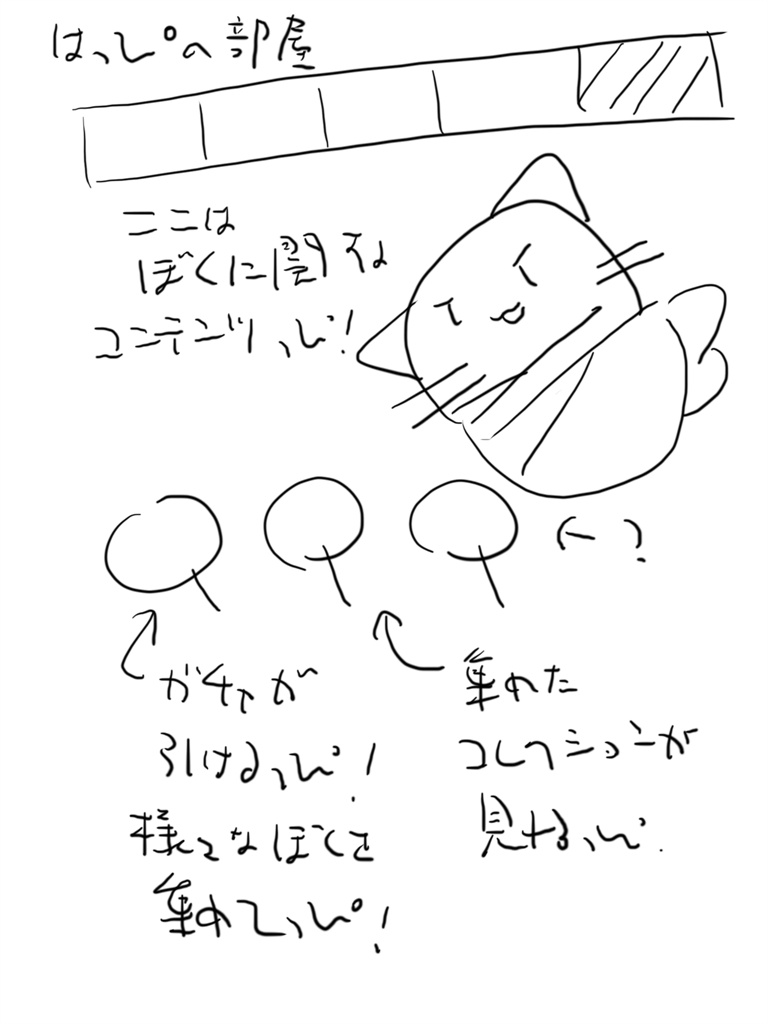 はっぴの部屋
ここは
ぼくに関する
コンテンツっぴ!
←?
ガチャが
引けるっぴ!
様々なぼくを
集めてっぴ!
集めた
コレクションが
見れるっぴ